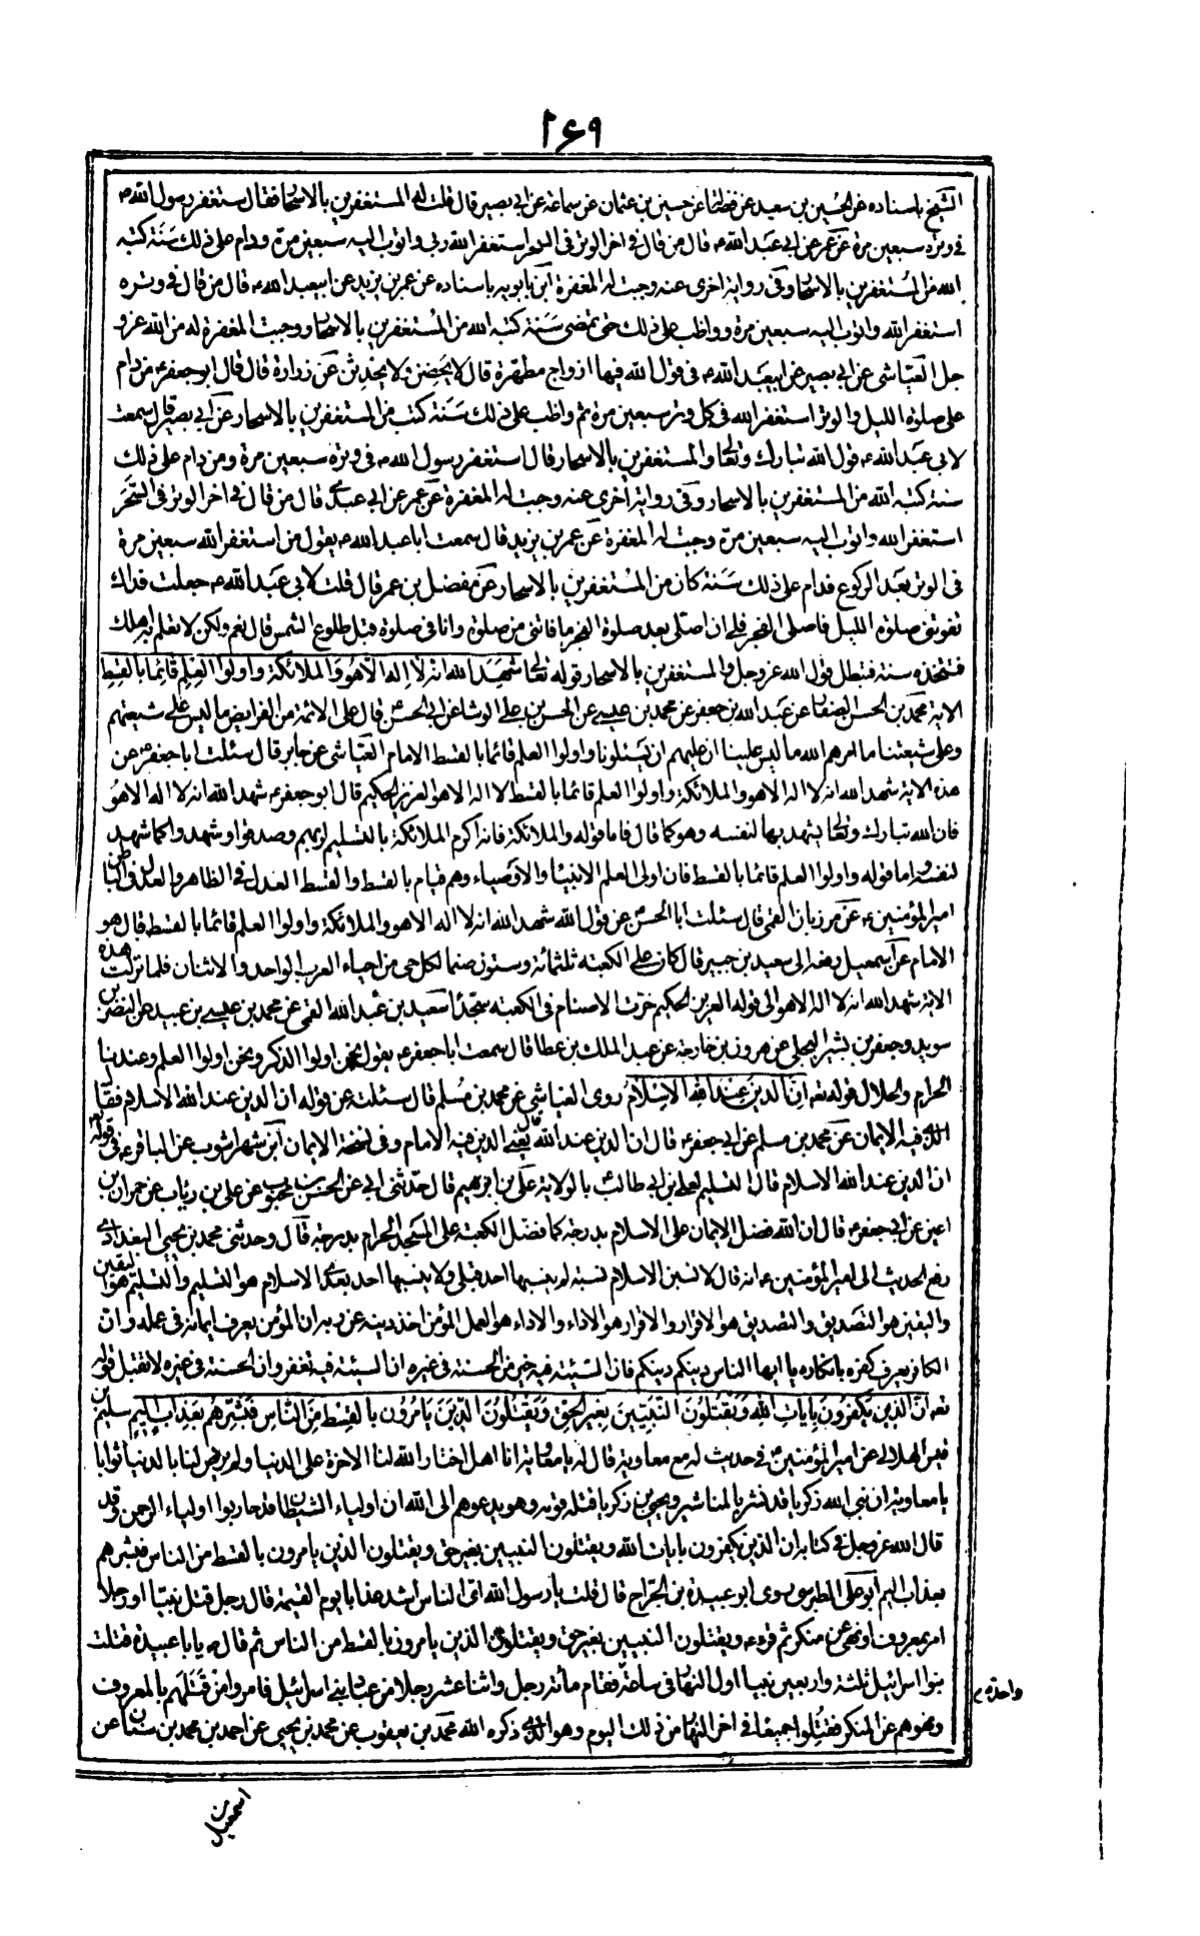 ٢٦٩
الشيخ باسناده عن الحسين بن سعيد عن فضالة عن حسين بن عثمان عن سماعة عن ابى بصير قال قلت له المستغفرين بالاسحار فقال استغفر رسول الله ص
فى وتره سبعين مرة عن عمر عن ابى عبد الله ع قال من قال فى اخر الوتر فى السحر استغفر الله ربى واتوب اليه سبعين مرة ودام على ذلك سنة كتبه
الله من المستغفرين بالاسحار وفى رواية اخرى عنه وجبت له المغفرة ابن بابويه باسناده عن عمر بن يزيد عن ابيعبد الله ع قال من قال فى وتره
استغفر الله واتوب اليه سبعين مرة وواظب على ذلك حتى تمضى سنة كتبه الله من المستغفرين بالاسحار ووجبت المغفرة له من الله عز و
جل العياشى عن ابى بصير عن ابيعبد الله ع فى قول الله فيها ازواج مطهرة قال لا يحضن ولا يحدثن عن زرارة قال قال ابو جعفر ع من دام
على صلوة الليل والوتر استغفر الله فى كل وتر سبعين مرة ثم واظب على ذلك سنة كتب من المستغفرين بالاسحار عن ابى بصير قال سمعت
لابى عبد الله ع قول الله تبارك وتعالى والمستغفرين بالاسحار قال استغفر رسول الله ص فى وتره سبعين مرة ومن دام على ذلك
سنة كتبه الله من المستغفرين بالاسحار وفى رواية اخرى عنه وجبت له المغفرة عن عمر عن ابى عبد الله قال من قال فى اخر الوتر فى السحر
استغفر الله واتوب اليه سبعين مرة وجبت له المغفرة عن عمر بن يزيد قال سمعت ابا عبد الله ع يقول من استغفر الله سبعين مرة
فى الوتر بعد الركوع فدام على ذلك سنة كان من المستغفرين بالاسحار عن مفضل بن عمر قال قلت لابى عبد الله ع جعلت فداك
تفوتنى صلوة الليل فاصلى الفجر فلى ان اصلى بعد صلوة الفجر ما فاتنى من صلوة وانا فى صلوة قبل طلوع الشمس قال نعم ولكن لا تعلم به اهلك
فتتخذه سنة فتبطل قول الله عز وجل والمستغفرين بالاسحار قوله تعالى شهد الله انه لا اله الا هو والملائكة واولوا العلم قائما بالقسط
الاية محمد بن الحسن الصفار عن عبد الله بن جعفر عن محمد بن عيسى عن الحسن بن على الوشا عن ابى الحسن ع قال على الائمة من الفرايض ما ليس على شيعتهم
وعلى شيعتنا ما امرهم الله ما ليس علينا ان عليهم ان يسئلونا واولوا العلم قائما بالقسط الامام العياشى عن جابر قال سئلت ابا جعفر ع عن
هذه الاية شهد الله انه لا اله الا هو والملائكة واولوا العلم قائما بالقسط لا اله الا هو العزيز الحكيم قال ابو جعفر ع شهد الله انه لا اله الا هو
فان الله تبارك وتعالى يشهد بها لنفسه وهو كما قال فاما قوله والملائكة فانه اكرم الملائكة بالتسليم لربهم وصدقوا وشهدوا كما شهد
لنفسه واما قوله واولوا العلم قائما بالقسط فان اولى العلم الانبياء والاوصياء وهم قيام بالقسط والقسط العدل فى الظاهر والعدل فى الباطن
امير المؤمنين ع عن مرزبان القمى قال سئلت ابا الحسن ع عن قول الله شهد الله انه لا اله الا هو والملائكة واولوا العلم قائما بالقسط قال هو
الامام عن اسمعيل رفعه الى سعيد بن جبير قال كان على الكعبة ثلثمائة وستون صنما لكل حى من احياء العرب الواحد والاثنان فلما نزلت هذه
الاية شهد الله انه لا اله الا هو الى قوله العزيز الحكيم خرت الاصنام فى الكعبة سجدا سعيد بن عبد الله القمى عن محمد بن عيسى بن عبيد عن النضر بن
سويد وجعفر بن بشير البجلى عن هرون بن خارجة عن عبد الملك بن عطا قال سمعت ابا جعفر ع يقول نحن اولوا الذكر ونحن اولوا العلم وعندنا
الحرام والحلال قوله تعه ان الدين عند الله الاسلام روى العياشى عن محمد بن مسلم قال سئلته عن قوله ان الدين عند الله الاسلام فقال
الذى فيه الايمان عن محمد بن مسلم عن ابى جعفر ع قال ان الدين عند الله قال يعنى الدين فيه الامام وفى نسخة الايمان ابن شهراشوب عن الباقر ع فى قوله تع
ان الدين عند الله الاسلام قال التسليم لعلى بن ابى طالب بالولاية على بن ابرهيم قال حدثنى ابى عن الحسن بن محبوب عن على بن رئاب عن حمران بن
اعين عن ابى جعفر ع قال ان الله فضل الايمان على الاسلام بدرجة كما فضل الكعبة على المسجد الحرام بدرجة قال وحدثنى محمد بن يحيى البغدادى
رفع الحديث الى امير المؤمنين ع انه قال لانسبن الاسلام نسبة لم ينسبها احد قبلى ولا ينسبها احد بعدى الاسلام هو التسليم والتسليم هو اليقين
واليقين هو التصديق والتصديق هو الاقرار والاقرار هو الاداء والاداء هو العمل المؤمن اخذ دينه عن ربه ان المؤمن يعرف ايمانه فى عمله وان
الكافر يعرف كفره بانكاره يا ايها الناس دينكم دينكم فان السيئة فيه خير من الحسنة فى غيره ان السيئة فيه تغفر وان الحسنة فى غيره لا تقبل قوله
تعه ان الذين يكفرون بايات الله ويقتلون النبيين بغير الحق ويقتلون الذين يامرون بالقسط من الناس فبشرهم بعذاب اليم سليم بن
قيس الهلالى عن امير المؤمنين ع فى حديث له مع معاوية قال له يا معاوية انا اهل اختار الله لنا الاخرة على الدنيا ولم يرض لنا بالدنيا ثوابا
يا معاوية ان نبى الله زكريا قد نشر بالمناشير ويحيى بن زكريا قتله قومه وهو يدعوهم الى الله ان اولياء الشيطان قد حاربوا اولياء الرحمن وقد
قال الله عز وجل فى كتابه ان الذين يكفرون بايات الله ويقتلون النبيين بغير حق ويقتلون الذين يامرون بالقسط من الناس فبشرهم
بعذاب اليم ابو على الطبرسى روى ابو عبيدة بن الجراح قال قلت يا رسول الله اى الناس اشد عذابا يوم القيمة قال رجل قتل نبيا او رجلا
امر بمعروف او نهى عن منكر ثم قرء ع ويقتلون النبيين بغير حق ويقتلون الذين يامرون بالقسط من الناس ثم قال ع يا با عبيدة قتلت
بنو اسرائيل ثلثة واربعين نبيا اول النهار فى ساعة فقام مائة رجل واثنا عشر رجلا من عباد بنى اسرائيل فامروا من قتلهم بالمعروف
واحدة
ونهوهم عن المنكر فقتلوا جميعا فى اخر النهار من ذلك اليوم وهو الذى ذكره الله محمد بن يعقوب عن محمد بن يحيى عن احمد بن محمد بن سنان عن
اسمعيل